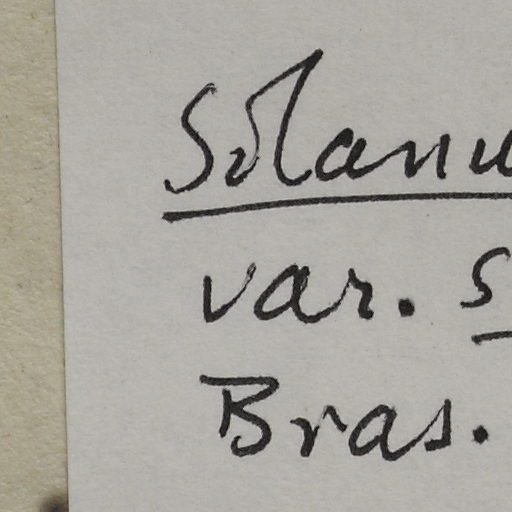 Solanu
var. s
Bras.